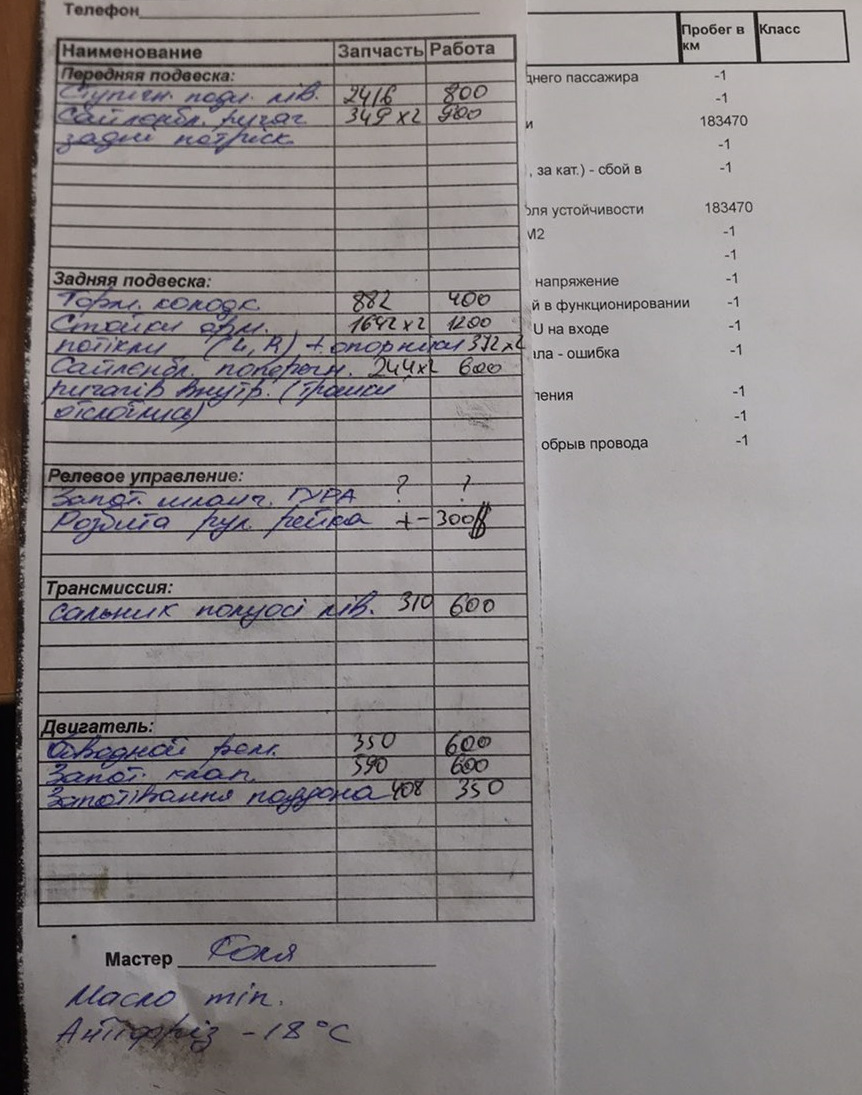 Телефон
Наименование Запчасть Работа
Передняя подвеска:
Ступичн. подш. лів. 2416 800
Сайлєнбл. ричаг 349 x2 900
задні потріск.
Задняя подвеска:
Торм. колодк 882 400
Стойки ам. 1642 x2 1200
потікли (L, R) + опорники 372 x2
Сайлєнбл. поперечн. 244 x2 600
ричагів внутр. (трошки
отслоїлись)
Релевое управление:
Запот. шланг. ГУРА ? ?
Розбита рул. рейка +-300$
Трансмиссия:
Сальник полуосі лів. 310 600
Двигатель:
Обводной рол. 350 600
Запот. клап. 590 600
Запотівання поддона 408 350
Мастер Толя
Масло min.
Антіфріз -18°C
Пробег в км Класс
днего пассажира -1
-1
и 183470
-1
, за кат.) - сбой в -1
оля устойчивости 183470
М2 -1
-1
напряжение -1
й в функционировании -1
U на входе -1
ала - ошибка -1
ления -1
-1
обрыв провода -1